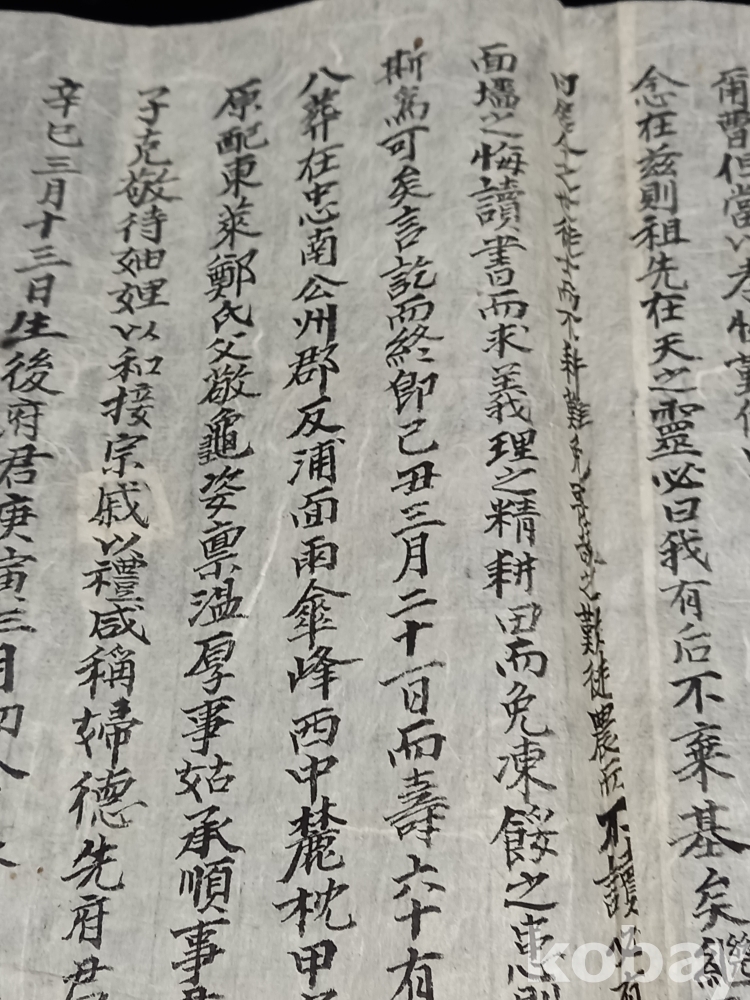 爾曹但當以孝
念在茲則祖先在天之靈必曰我有后不棄基矣繼
而不耕難免之難徒農而不讀
面墻之悔讀書而求義理之精耕田而免凍餒之患則
斯爲可矣言訖而終卽己丑三月二十一日而壽六十有
八葬在忠南公州郡反浦面雨傘峰西中麓枕甲
原配東萊鄭氏父敬龜姿稟溫厚事姑承順事君
子克敬待妯娌以和接宗戚以禮咸稱婦德先府君
辛巳三月十三日生後府君庚寅三月初八
kobay